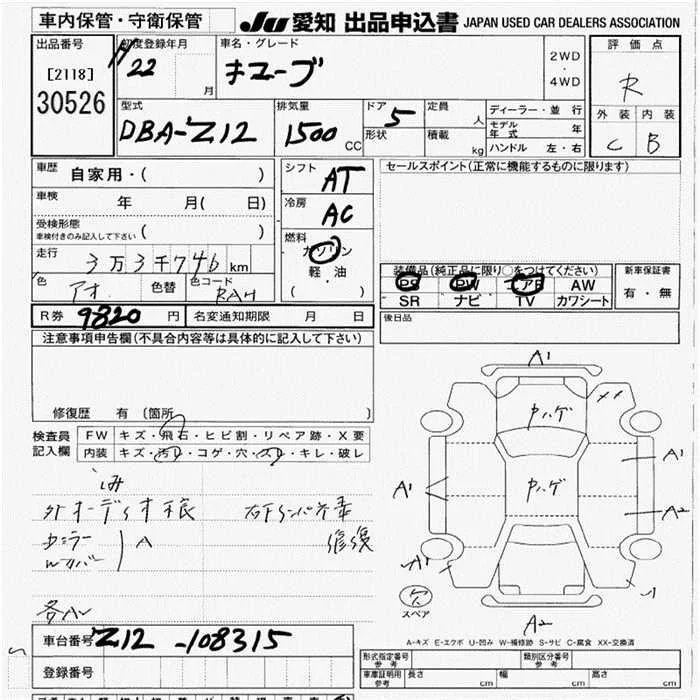 車内保管・守衛保管
JU 愛知 出品申込書 JAPAN USED CAR DEALERS ASSOCIATION
出品番号
[2118]
30526
初度登録年月
H22 月
車名・グレード
キューブ
2WD
・
4WD
評価点
R
外装 内装
C B
型式
DBA-Z12
排気量
1500 CC
ドア 5
形状
定員 人
積載 kg
ディーラー・並行
モデル年式 年
ハンドル 左・右
車歴
自家用・( )
車検
年 月( 日)
受検形態
車検付きのみ記入して下さい ( )
走行
3万3千746 km
色 アオ 色替 色コード RAH
シフト
AT
冷房
AC
燃料
ガソリン
軽・油
( )
セールスポイント(正常に機能するものに限ります)
装備品(純正品に限り○をつけてください)
PS PW エアB AW
SR ナビ TV カワシート
新車保証書
有・無
R券 9820 円 名変通知期限 月 日
後日品
注意事項申告欄(不具合内容等は具体的に記入して下さい)
修復歴 有〔箇所 〕
検査員
記入欄
FW キズ・飛石・ヒビ割・リペア跡・X要
内装 キズ・汚レ・コゲ・穴・スレ・キレ・破レ
A1
中ハゲ
XX
A1
A1
中ハゲ
A2
A1
A2
スペア
A-キズ E-エクボ U-凹み W-補修跡 S-サビ C-腐食 XX-交換済
車台番号 Z12-108315
登録番号
形式指定番号
参考
類別区分番号
参考
車庫証明用
参考
長さ cm 幅 cm 高さ cm